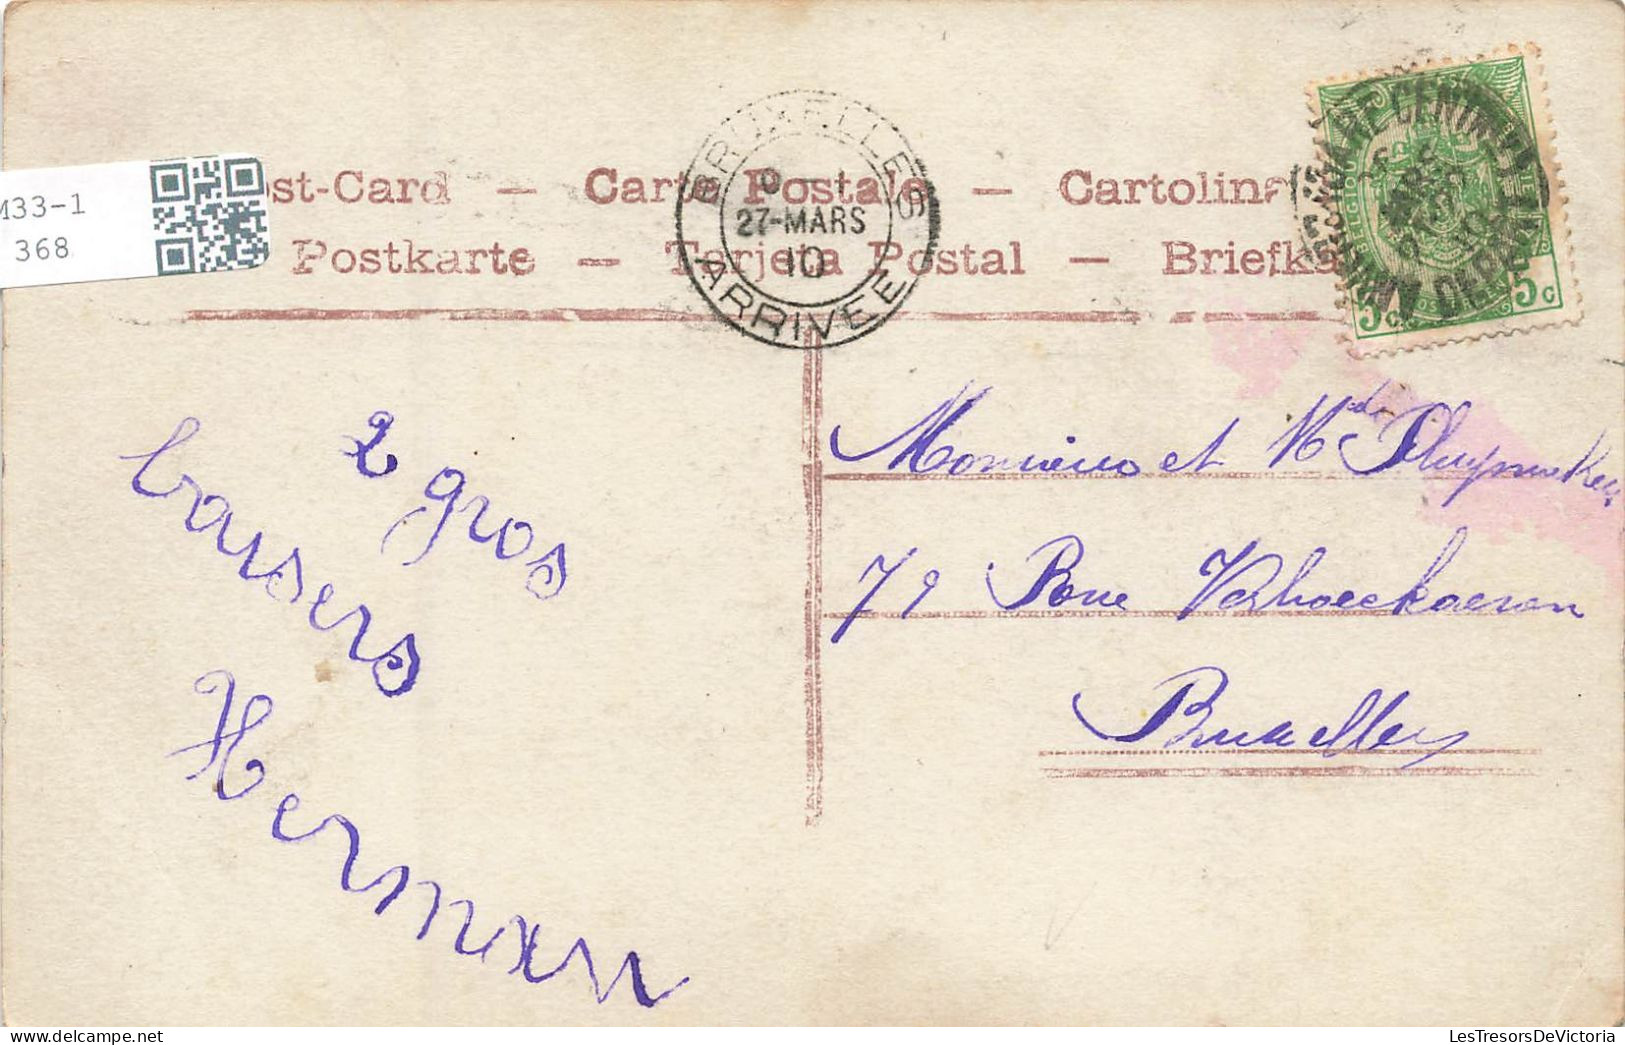 M33-1
368
Post-Card — Carte Postale — Cartolina
Postkarte — Tarjeta Postal — Briefka
BRUXELLES
9
27-MARS
10
ARRIVEE
5c 5c
2 gros
baisers
Herman
Monsieur et Mde
79 Rue Verhoeckaeren
Bruxelles
LesTresorsDeVictoria.com